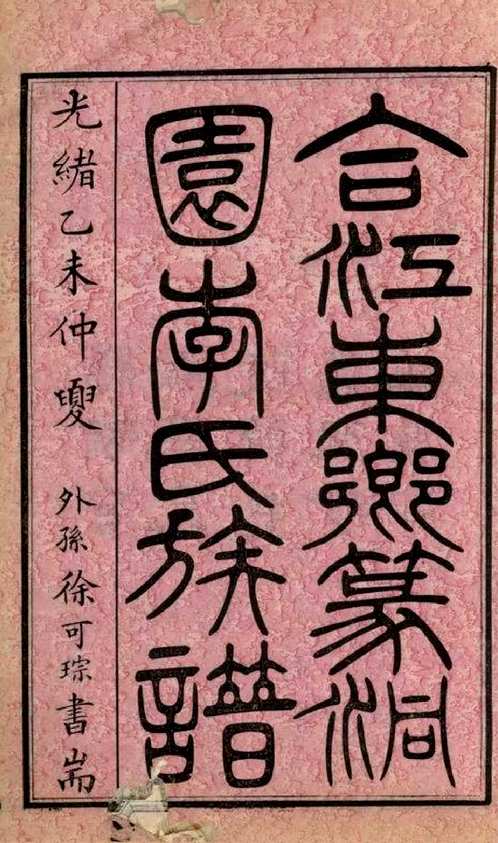 合江東鄉篆洞
園李氏族譜
光緒乙未仲夓 外孫徐可琮書耑